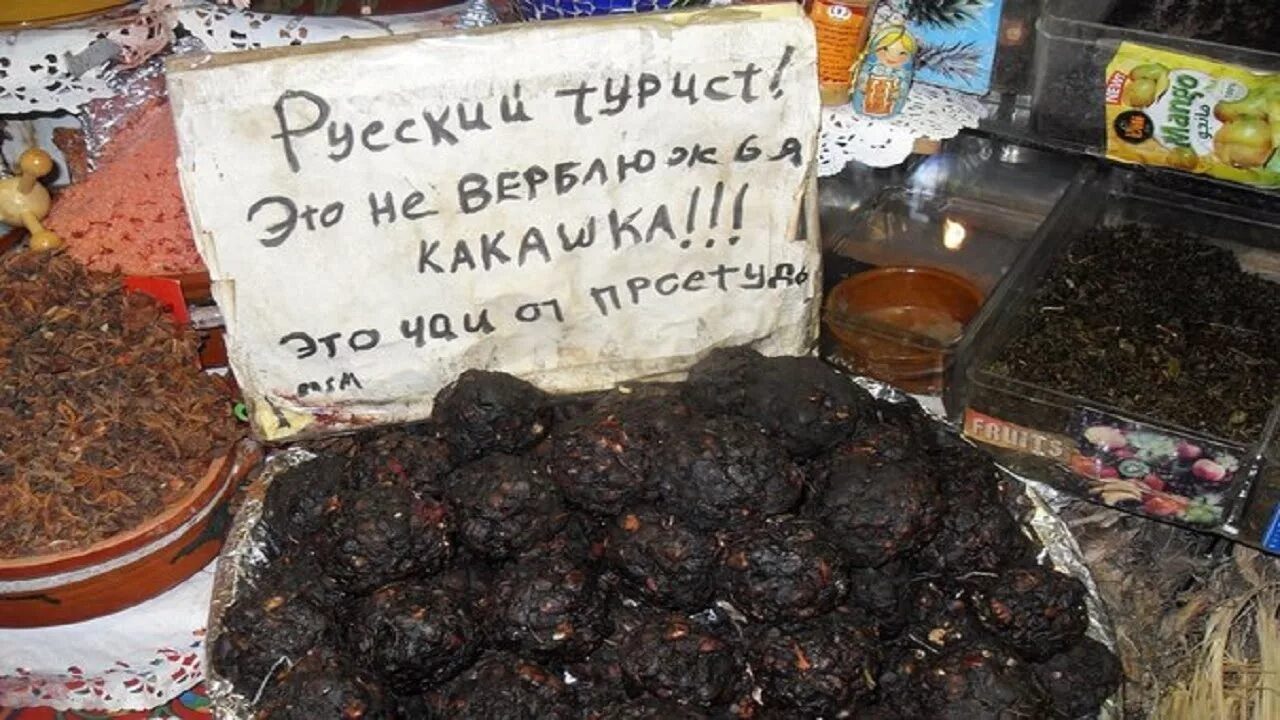 Русский турист!
Это не верблюжбя
КАКАШКА!!!
Это чаи от просетуды
NEW
Mango
مانجو
FRUITS